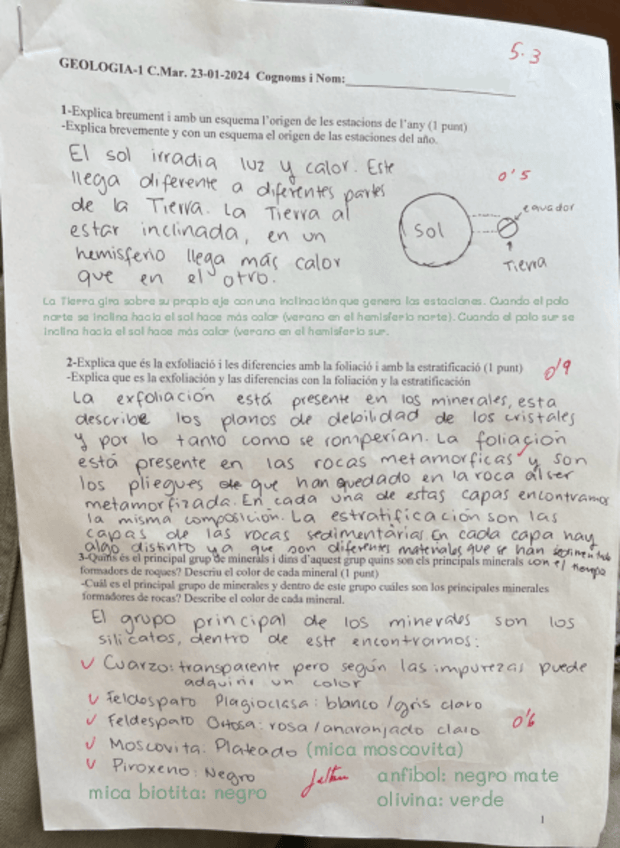 5.3
GEOLOGIA-1 C.Mar. 23-01-2024 Cognoms i Nom:
1-Explica breument i amb un esquema l'origen de les estacions de l'any (1 punt)
-Explica brevemente y con un esquema el origen de las estaciones del año.
El sol irradia luz y calor. Este
llega diferente a diferentes partes
de la Tierra. La Tierra al
estar inclinada, en un
hemisferio llega más calor
que en el otro.
0'5
Sol
ecuador
Tierra
La Tierra gira sobre su propio eje con una inclinación que genera las estaciones. Cuando el polo
norte se inclina hacia el sol hace más calor (verano en el hemisferio norte). Cuando el polo sur se
inclina hacia el sol hace más calor (verano en el hemisferio sur.
2-Explica que és la exfoliació i les diferencies amb la foliació i amb la estratificació (1 punt)
-Explica que es la exfoliación y las diferencias con la foliación y la estratificación
0'9
La exfoliación está presente en los minerales, esta
describe los planos de debilidad de los cristales
y por lo tanto como se romperían. La foliación
está presente en las rocas metamorficas y son
los pliegues que han quedado en la roca al ser
metamorfizada. En cada una de estas capas encontramos
la misma composición. La estratificación son las
capas de las rocas sedimentarias. En cada capa hay
algo distinto ya que son diferentes materiales que se han sedimentado
con el tiempo
3-Quins és el principal grup de minerals i dins d'aquest grup quins son els principals minerals
formadors de roques? Descriu el color de cada mineral (1 punt)
-Cuál es el principal grupo de minerales y dentro de este grupo cuáles son los principales minerales
formadores de rocas? Describe el color de cada mineral.
El grupo principal de los minerales son los
silicatos, dentro de este encontramos:
Cuarzo: transparente pero según las impurezas puede
adquirir un color
Feldespato Plagioclasa: blanco / gris claro
Feldespato Ortosa: rosa / anaranjado claro
0'6
Moscovita: Plateado (mica moscovita)
Piroxeno: Negro
anfibol: negro mate
mica biotita: negro
olivina: verde
1